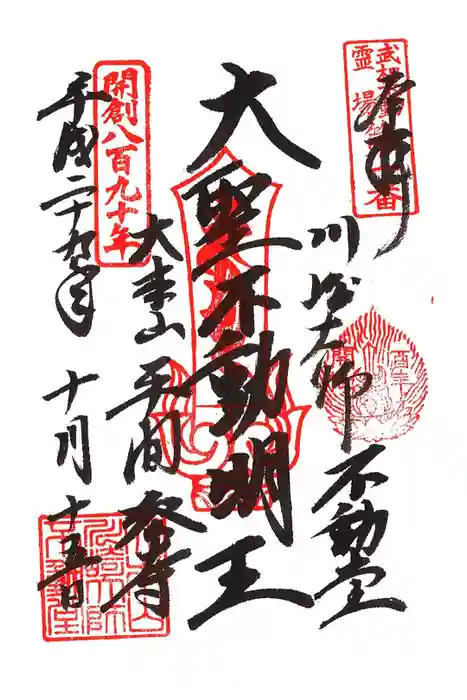 奉拝
武相
霊場
一番
川崎大師 不動堂
酉年
開
大聖不動明王
大本山 平間寺
開創八百九十年
平成二十九年 十月十五日